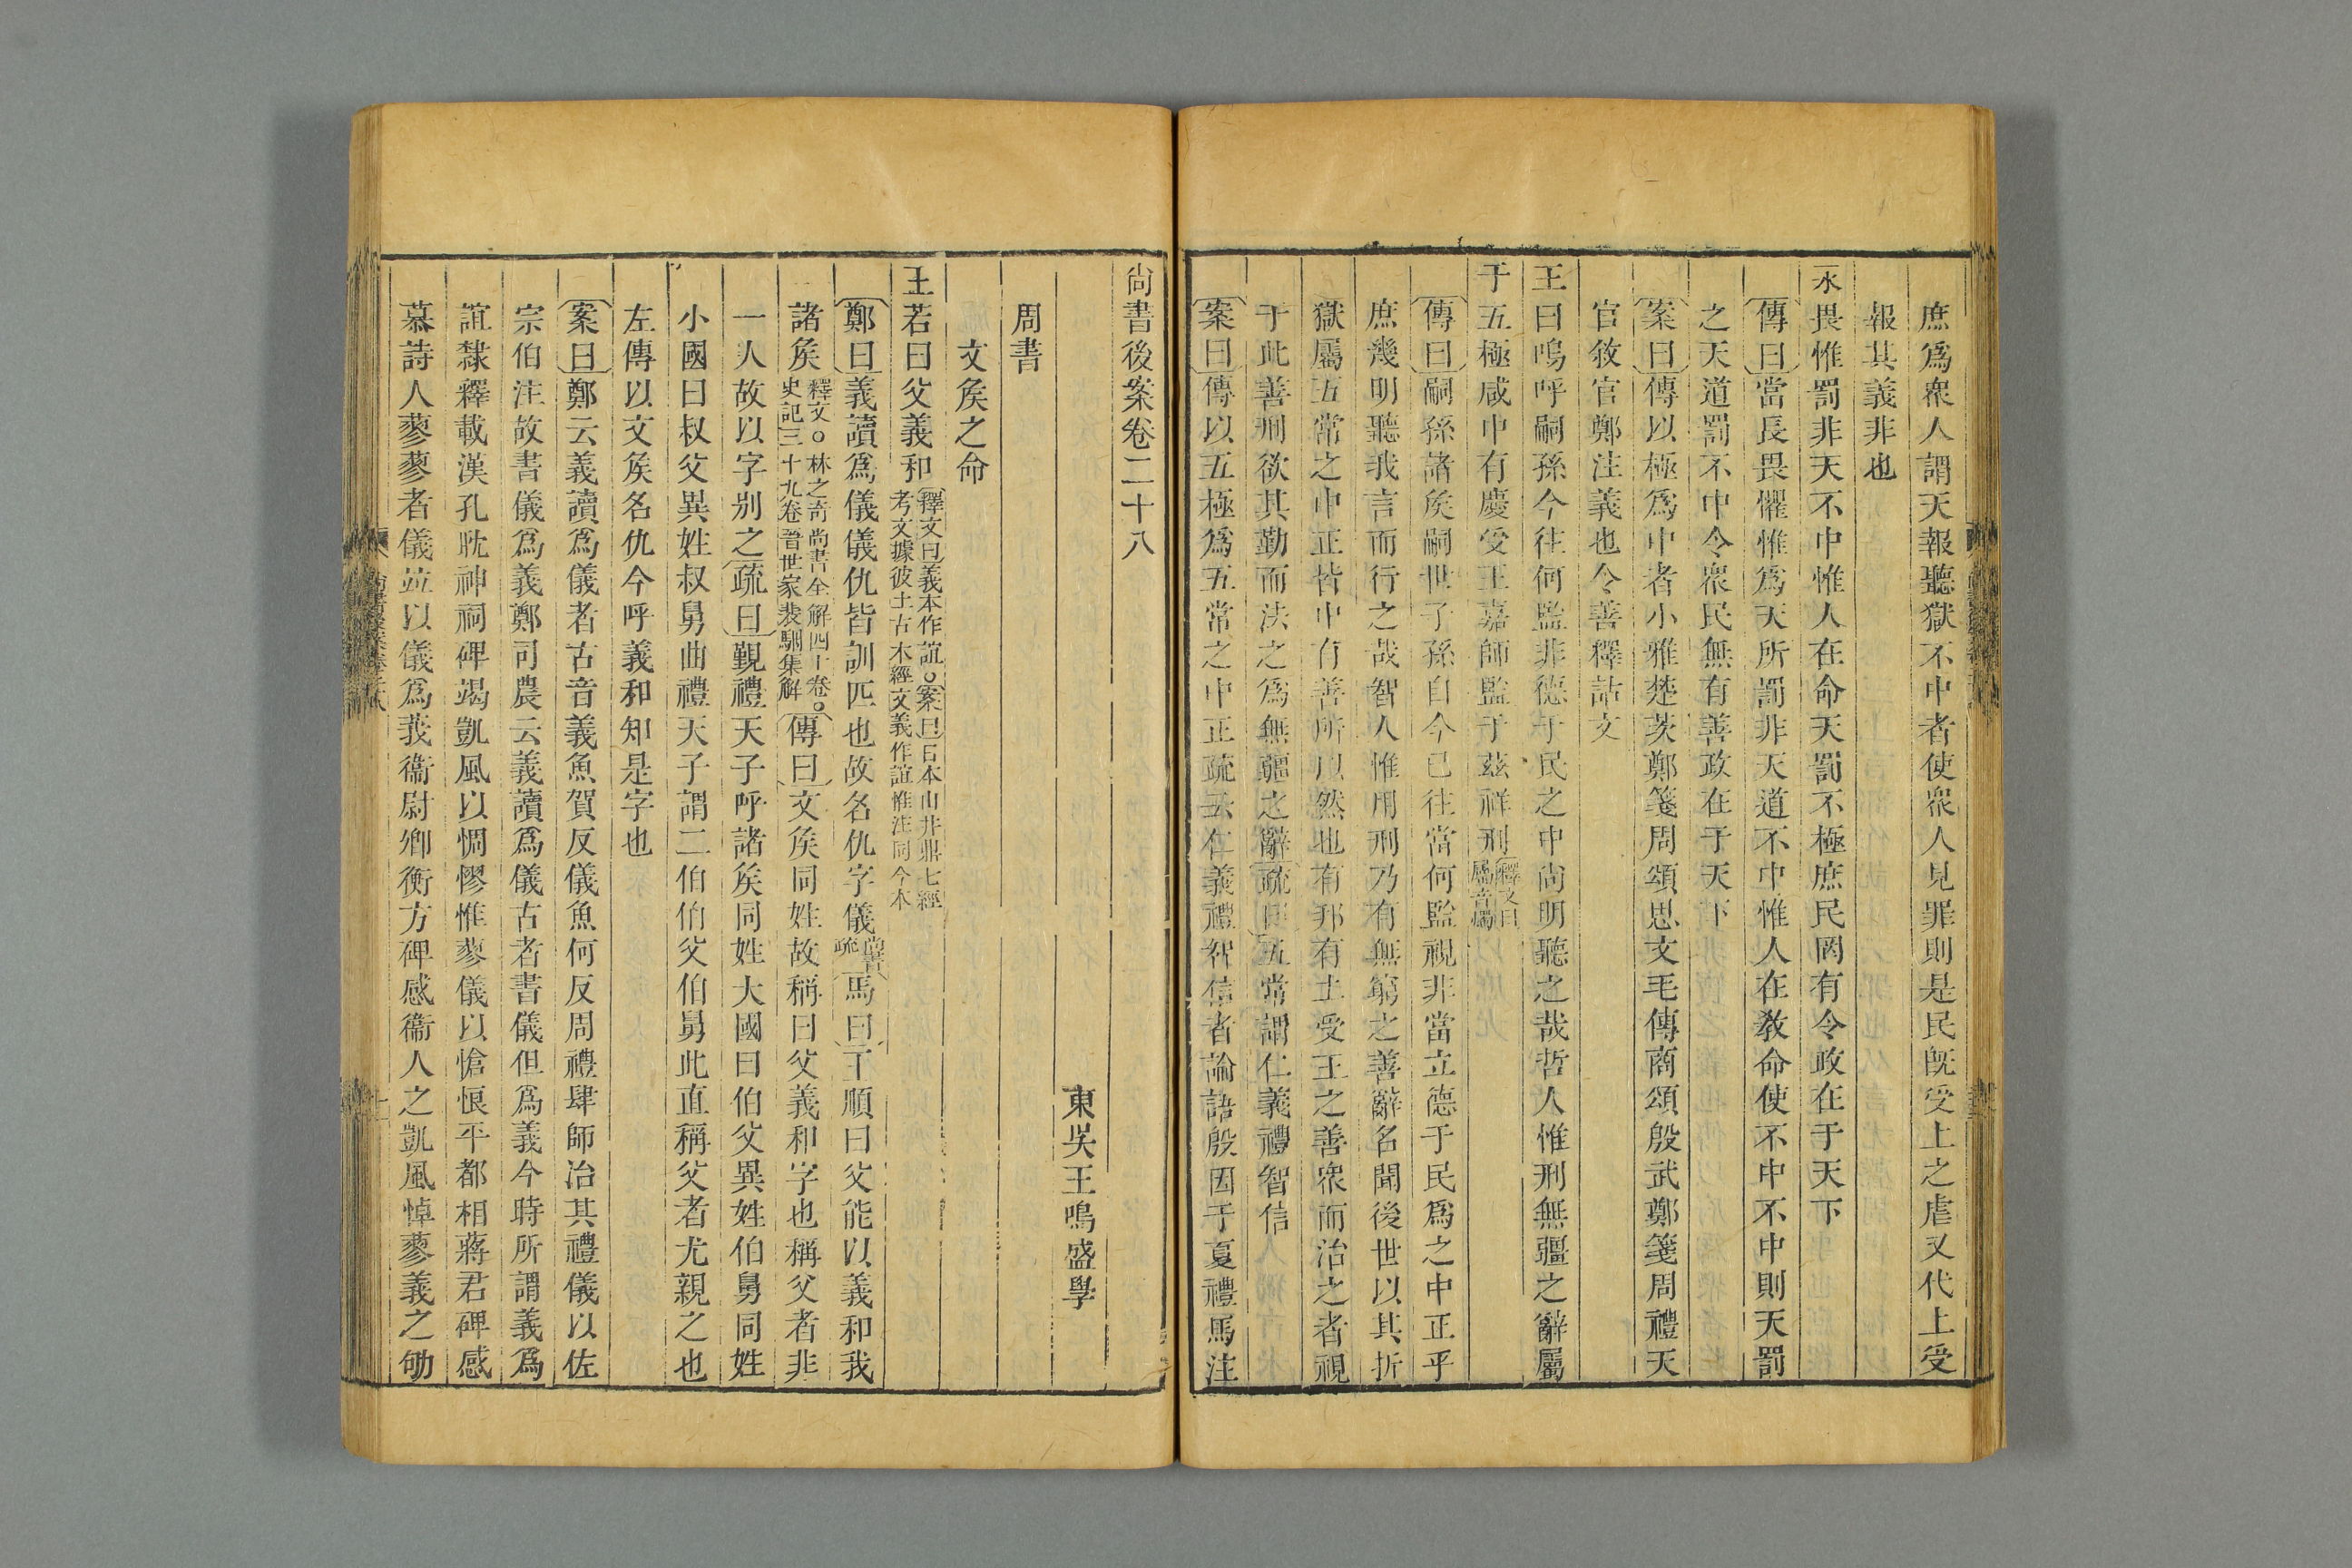 庶爲衆人謂天報聽獄不中者使衆人見罪則是民旣受上之虐又代上受
報其義非也
永畏惟罰非天不中惟人在命天罰不極庶民罔有令政在于天下
傳曰當長畏懼惟爲天所罰非天道不中惟人在敎命使不中不中則天罰
之天道罰不中令衆民無有善政在于天下
案曰傳以極爲中者小雅楚茨鄭箋周頌思文毛傳商頌殷武鄭箋周禮天
官敘官鄭注義也令善釋詁文
王曰嗚呼嗣孫今往何監非德于民之中尚明聽之哉哲人惟刑無疆之辭屬
于五極咸中有慶受王嘉師監于茲祥刑釋文曰屬音燭
傳曰嗣孫諸矦嗣世子孫自今已往當何監視非當立德于民爲之中正乎
庶幾明聽我言而行之哉智人惟用刑乃有無窮之善辭名聞後世以其折
獄屬五常之中正皆中有善所以然也有邦有土受王之善衆而治之者視
于此善刑欲其勤而法之爲無疆之辭疏曰五常謂仁義禮智信
案曰傳以五極爲五常之中正疏云仁義禮智信者論語殷因于夏禮馬注
尚書後案卷二十八
東吳王鳴盛學
周書
文矦之命
王若曰父義和釋文曰義本作誼○案曰日本山井鼎七經考文據彼土古本經文義作誼惟注同今本
鄭曰義讀爲儀儀仇皆訓匹也故名仇字儀尚書疏馬曰王順曰父能以義和我
諸矦釋文○林之奇尚書全解四十卷○史記三十九卷晉世家裴駰集解傳曰文矦同姓故稱曰父義和字也稱父者非
一人故以字别之疏曰覲禮天子呼諸矦同姓大國曰伯父異姓伯舅同姓
小國曰叔父異姓叔舅曲禮天子謂二伯伯父伯舅此直稱父者尤親之也
左傳以文矦名仇今呼義和知是字也
案曰鄭云義讀爲儀者古音義魚賀反儀魚何反周禮肆師治其禮儀以佐
宗伯注故書儀爲義鄭司農云義讀爲儀古者書儀但爲義今時所謂義爲
誼隸釋載漢孔耽神祠碑竭凱風以惆㥒惟蓼儀以愴悢平都相蔣君碑感
慕詩人蓼蓼者儀竝以儀爲莪衞尉卿衡方碑感衞人之凱風悼蓼義之劬